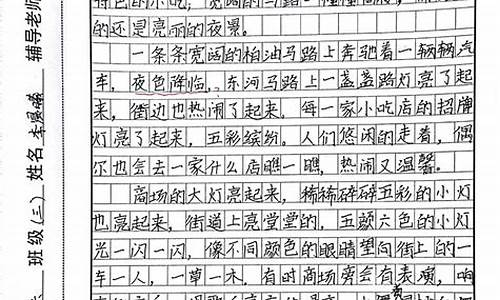 的还是亮丽的夜景。
一条条宽阔的柏油马路上奔驰着一辆辆汽
车，夜色降临，东河马路上一盏盏路灯亮了起
来，街边也热闹了起来，每一家小吃店的招牌
灯亮了起来，五彩缤纷。人们悠闲的走着，偶
尔也会去一家什么店瞧一瞧，热闹又温馨。
商场的大灯亮起来，稀稀碎碎五彩的小灯
也亮起来，街道上亮堂堂的，五颜六色的小灯
光一闪一闪，像不同颜色的眼睛望向街上的一
车一人，一草一木，有时商场旁会有表演，响
班级(三) 姓名 李 辅导老师